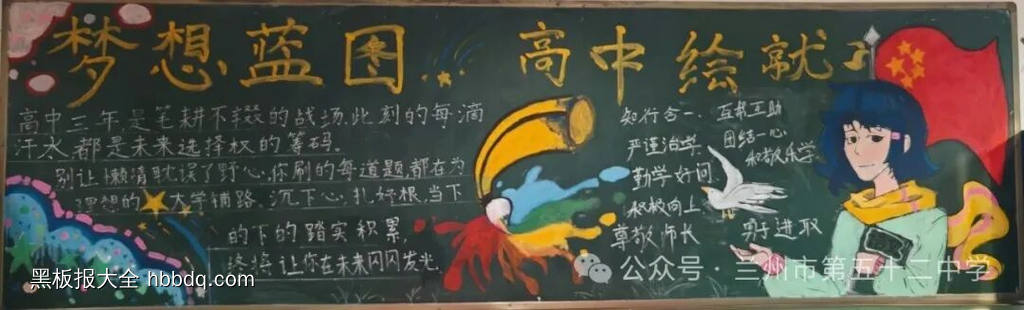 梦想蓝图 高中绘就
高中三年是笔耕不辍的战场,此刻的每滴
汗水,都是未来选择权的筹码。
别让懒惰耽误了野心,你刷的每道题都在为
理想的大学铺路,沉下心,扎好根,当下
的下的踏实积累,
终将让你在未来闪闪发光.
知行合一、互帮互助
严谨治学、团结一心
勤学好问 和敬乐学
积极向上、
尊敬师长 勇于进取
黑板报大全 hbbdq.com
公众号·兰州市第五十二中学